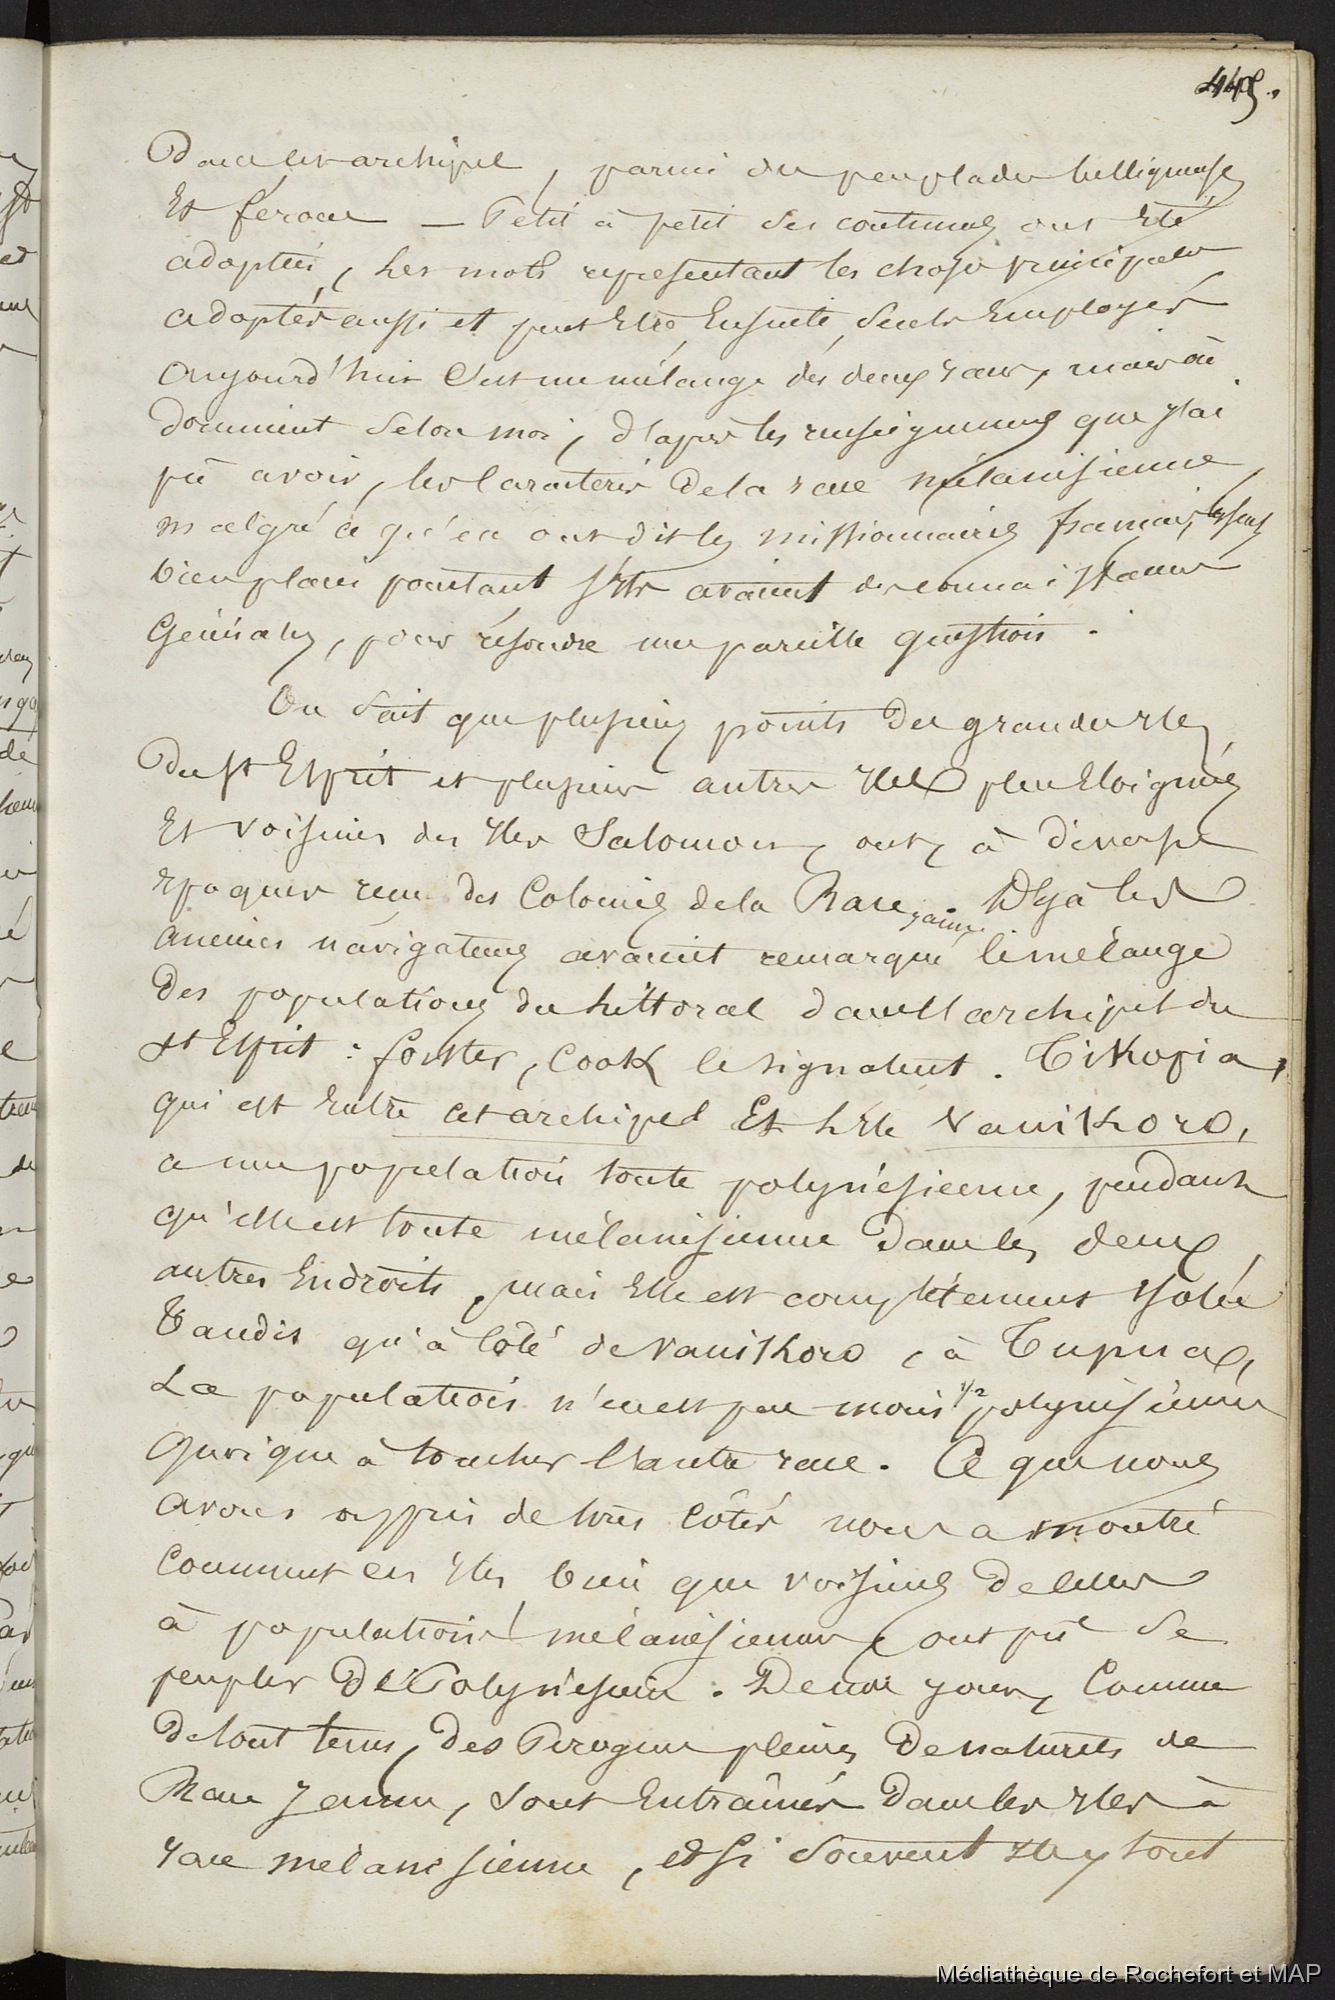 449.
Dans cet archipel, parmi des peuplades belliqueuses
Et féroces — Petit à petit ses coutumes ont été
adoptées, les mots représentant les choses principales
adoptés aussi et peut Etre Ensuite, seuls Employés
aujourd'hui C'est un mélange des deux races, mais où
dominent selon moi, d'après les renseignemens que j'ai
pû avoir, les Caractères de la race mélanésienne,
malgré ce qu'en ont dit les missionnaires français,
bien placés pourtant s'ils avaient des connaissances
Générales, pour résoudre une pareille question.
On sait que plusieurs points des grandes Iles
Du St Esprit et plusieurs autres Iles plus Eloignées
Et voisines des Iles Salomon, ont, à diverses
Epoques reçu des Colonies de la Race jaune. Déjà les
anciens navigateurs avaient remarqué le mélange
Des populations du littoral dans l'archipel du
St Esprit : forster, Cook le signalent. Tikopia,
qui est Entre cet archipel Et l'Ile Vanikoro,
a une population toute polynésienne, pendant
qu'elle est toute mélanésienne Dans les deux
autres Endroits, mais Elle est complètement Isolée
Tandis qu'à Coté de Vanikoro, à
La population n'en est pas moins 1/2 polynésienne
Quoique à toucher l'autre race. Ce que nous
avons appris de tous Côtés nous a montré
Comment ces Iles, bien que voisines De celles
à populations mélanésiennes, ont pû Se
peupler De Polynésiens. De nos jours, Comme
De tout tems, Des Pirogues pleines De naturels de
Race Jaune, sont Entraînées Dans les Iles à
race mélanésienne, et si Souvent Ils y sont
Médiathèque de Rochefort et MAP